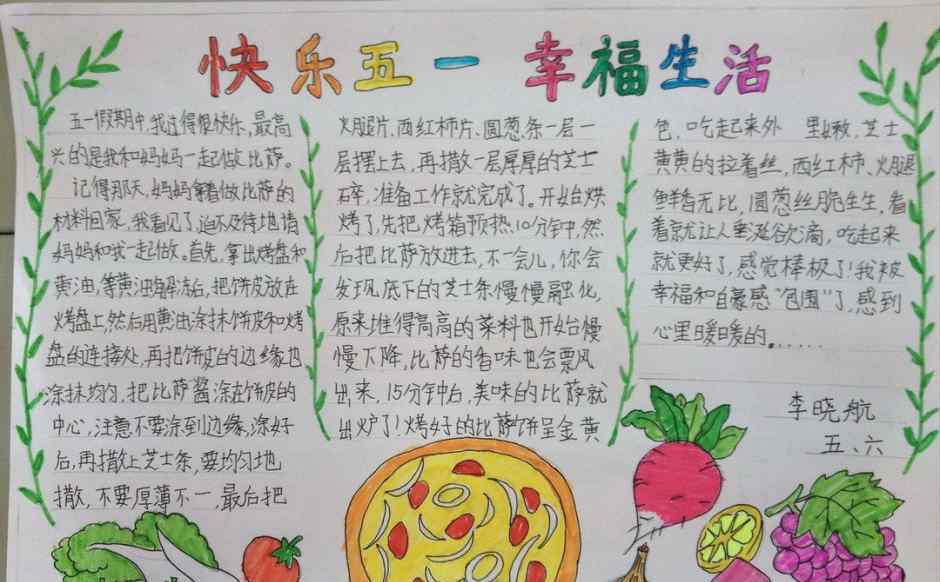 快乐五一 幸福生活
五一假期中,我过得很快乐,最高
兴的是我和妈妈一起做比萨。
记得那天,妈妈拿着做比萨的
材料回家,我看见了迫不及待地请
妈妈和我一起做。首先,拿出烤盘和
黄油,等黄油解冻后,把饼皮放在
烤盘上,然后用黄油涂抹饼皮和烤
盘的连接处,再把饼皮的边缘也
涂抹均匀,把比萨酱涂在饼皮的
中心,注意不要涂到边缘,涂好
后,再撒上芝士条,要均匀地
撒,不要厚薄不一,最后把
火腿片、西红柿片、圆葱条一层一
层摆上去,再撒一层厚厚的芝士
碎,准备工作就完成了。开始烘
烤了,先把烤箱预热10分钟,然
后把比萨放进去,不一会儿,你会
发现底下的芝士条慢慢融化,
原来堆得高高的菜料也开始慢
慢下降,比萨的香味也会飘
出来,15分钟后,美味的比萨就
出炉了!烤好的比萨饼呈金黄
色,吃起来外 里嫩,芝士
黄黄的拉着丝,西红柿、火腿
鲜香无比,圆葱丝脆生生,看
着就让人垂涎欲滴,吃起来
就更好了,感觉棒极了!我被
幸福和自豪感“包围”了,感到
心里暖暖的。……
李晓航
五、六